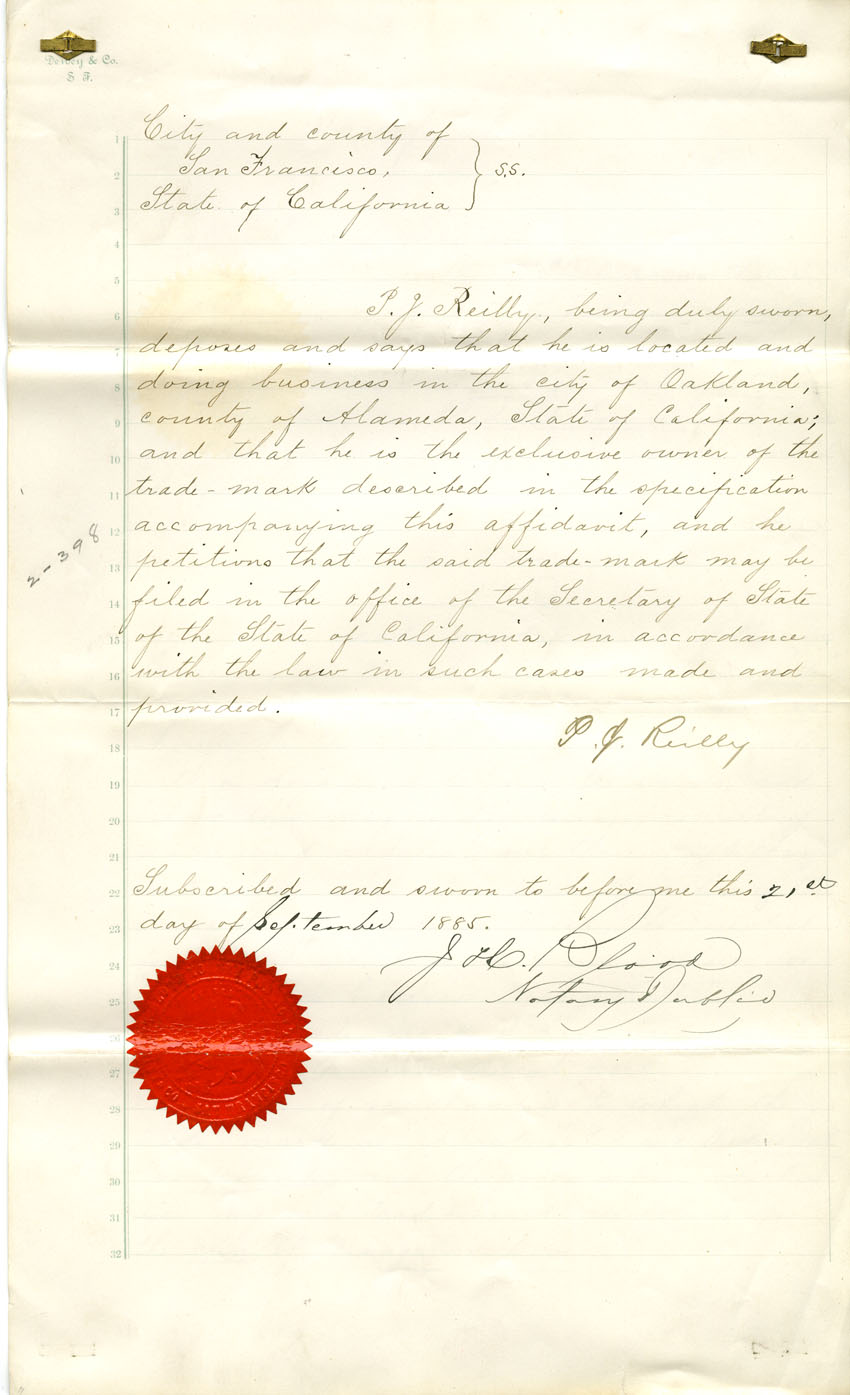 Dewey & Co.
S F.
City and county of
San Francisco,
State of California
} s.s.
P. J. Reilly, being duly sworn,
deposes and says that he is located and
doing business in the city of Oakland,
county of Alameda, State of California;
and that he is the exclusive owner of the
trade-mark described in the specification
accompanying this affidavit, and he
petitions that the said trade-mark may be
filed in the office of the Secretary of State
of the State of California, in accordance
with the law in such cases made and
provided.
P. J. Reilly
2-398
Subscribed and sworn to before me this 21st
day of September 1885.
J. H. Blood
Notary Public
1
2
3
4
5
6
7
8
9
10
11
12
13
14
15
16
17
18
19
20
21
22
23
24
25
26
27
28
29
30
31
32